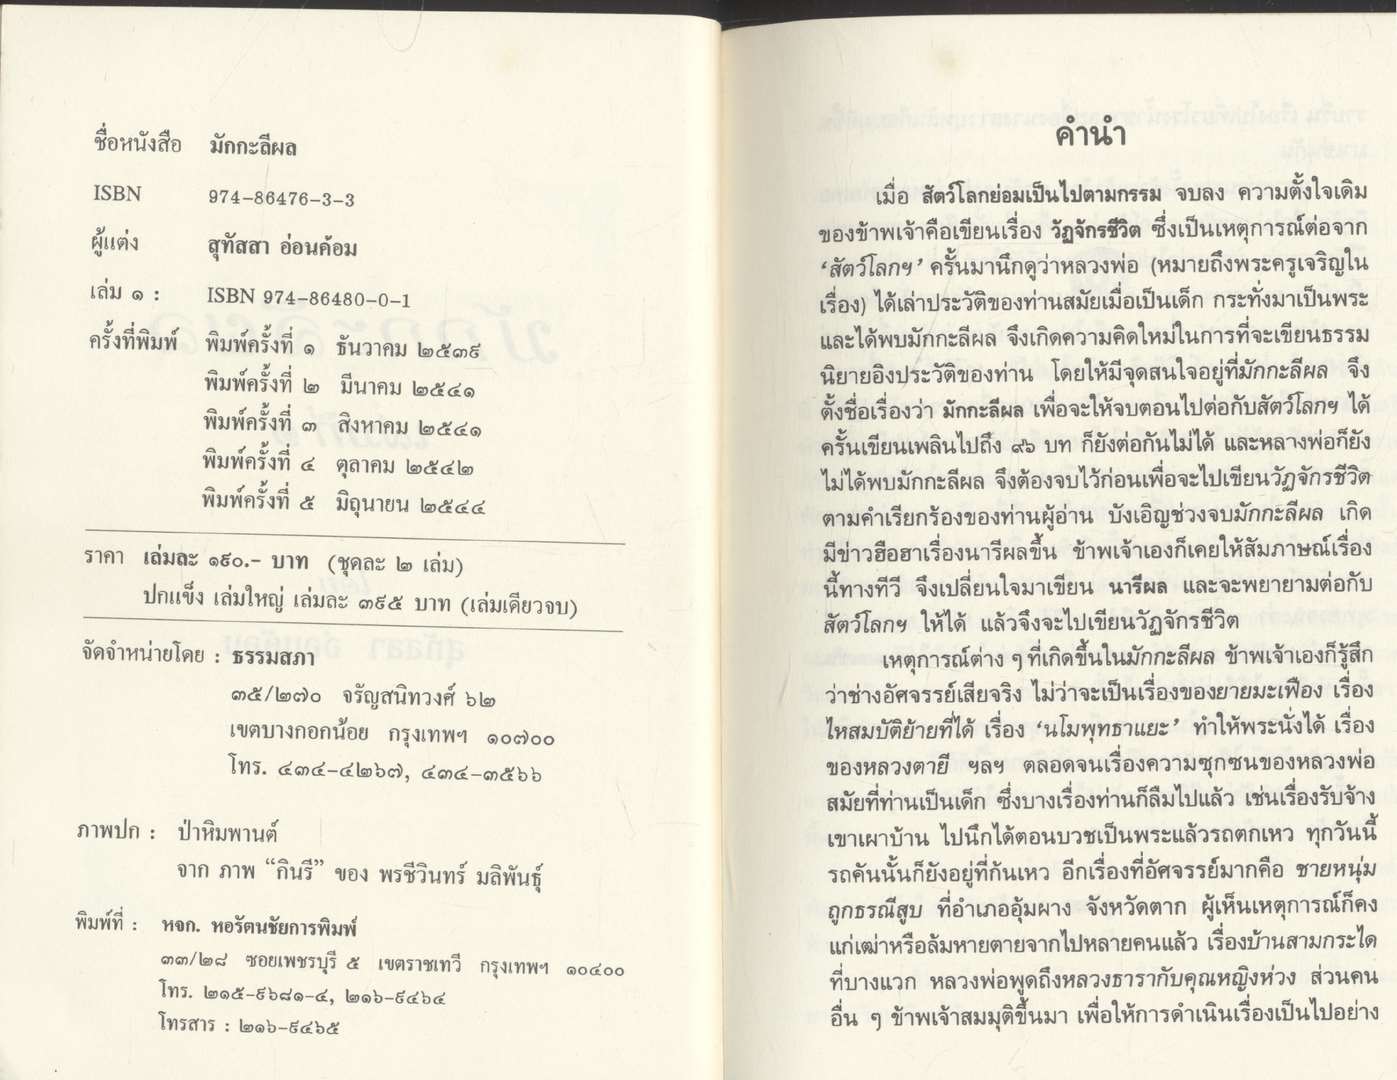 ชื่อหนังสือ มักกะลีผล
ISBN 974-86476-3-3
ผู้แต่ง สุทัสสา อ่อนค้อม
เล่ม ๑ : ISBN 974-86480-0-1
ครั้งที่พิมพ์ พิมพ์ครั้งที่ ๑ ธันวาคม ๒๕๓๙
พิมพ์ครั้งที่ ๒ มีนาคม ๒๕๔๑
พิมพ์ครั้งที่ ๓ สิงหาคม ๒๕๔๑
พิมพ์ครั้งที่ ๔ ตุลาคม ๒๕๔๒
พิมพ์ครั้งที่ ๕ มิถุนายน ๒๕๔๔
ราคา เล่มละ ๑๙๐.- บาท (ชุดละ ๒ เล่ม)
ปกแข็ง เล่มใหญ่ เล่มละ ๓๙๕ บาท (เล่มเดียวจบ)
จัดจำหน่ายโดย : ธรรมสภา
๓๕/๒๗๐ จรัญสนิทวงศ์ ๖๒
เขตบางกอกน้อย กรุงเทพฯ ๑๐๗๐๐
โทร. ๔๓๔-๔๒๖๗, ๔๓๔-๓๕๖๖
ภาพปก : ป่าหิมพานต์
จาก ภาพ “กินรี” ของ พรชีวินทร์ มลิพันธุ์
พิมพ์ที่ : หจก. หอรัตนชัยการพิมพ์
๓๓/๒๘ ซอยเพชรบุรี ๕ เขตราชเทวี กรุงเทพฯ ๑๐๔๐๐
โทร. ๒๑๕-๙๖๘๑-๔, ๒๑๖-๙๔๖๔
โทรสาร : ๒๑๖-๙๔๖๕
คำนำ
เมื่อ สัตว์โลกย่อมเป็นไปตามกรรม จบลง ความตั้งใจเดิม
ของข้าพเจ้าคือเขียนเรื่อง วัฏจักรชีวิต ซึ่งเป็นเหตุการณ์ต่อจาก
‘สัตว์โลกฯ’ ครั้นมานึกดูว่าหลวงพ่อ (หมายถึงพระครูเจริญใน
เรื่อง) ได้เล่าประวัติของท่านสมัยเมื่อเป็นเด็ก กระทั่งมาเป็นพระ
และได้พบมักกะลีผล จึงเกิดความคิดใหม่ในการที่จะเขียนธรรม
นิยายอิงประวัติของท่าน โดยให้มีจุดสนใจอยู่ที่มักกะลีผล จึง
ตั้งชื่อเรื่องว่า มักกะลีผล เพื่อจะให้จบตอนไปต่อกับสัตว์โลกฯ ได้
ครั้นเขียนเพลินไปถึง ๙๖ บท ก็ยังต่อกันไม่ได้ และหลางพ่อก็ยัง
ไม่ได้พบมักกะลีผล จึงต้องจบไว้ก่อนเพื่อจะไปเขียนวัฏจักรชีวิต
ตามคำเรียกร้องของท่านผู้อ่าน บังเอิญช่วงจบมักกะลีผล เกิด
มีข่าวฮือฮาเรื่องนารีผลขึ้น ข้าพเจ้าเองก็เคยให้สัมภาษณ์เรื่อง
นี้ทางทีวี จึงเปลี่ยนใจมาเขียน นารีผล และจะพยายามต่อกับ
สัตว์โลกฯ ให้ได้ แล้วจึงจะไปเขียนวัฏจักรชีวิต
เหตุการณ์ต่าง ๆ ที่เกิดขึ้นในมักกะลีผล ข้าพเจ้าเองก็รู้สึก
ว่าช่างอัศจรรย์เสียจริง ไม่ว่าจะเป็นเรื่องของยายมะเฟือง เรื่อง
ไหสมบัติย้ายที่ได้ เรื่อง ‘นโมพุทธาแยะ’ ทำให้พระนั่งได้ เรื่อง
ของหลวงตายี ฯลฯ ตลอดจนเรื่องความซุกซนของหลวงพ่อ
สมัยที่ท่านเป็นเด็ก ซึ่งบางเรื่องท่านก็ลืมไปแล้ว เช่นเรื่องรับจ้าง
เขาเผาบ้าน ไปนึกได้ตอนบวชเป็นพระแล้วรถตกเหว ทุกวันนี้
รถคันนั้นก็ยังอยู่ที่ก้นเหว อีกเรื่องที่อัศจรรย์มากคือ ชายหนุ่ม
ถูกธรณีสูบ ที่อำเภออุ้มผาง จังหวัดตาก ผู้เห็นเหตุการณ์ก็คง
แก่เฒ่าหรือล้มหายตายจากไปหลายคนแล้ว เรื่องบ้านสามกระได
ที่บางแวก หลวงพ่อพูดถึงหลวงธารากับคุณหญิงห่วง ส่วนคน
อื่น ๆ ข้าพเจ้าสมมุติขึ้นมา เพื่อให้การดำเนินเรื่องเป็นไปอย่าง